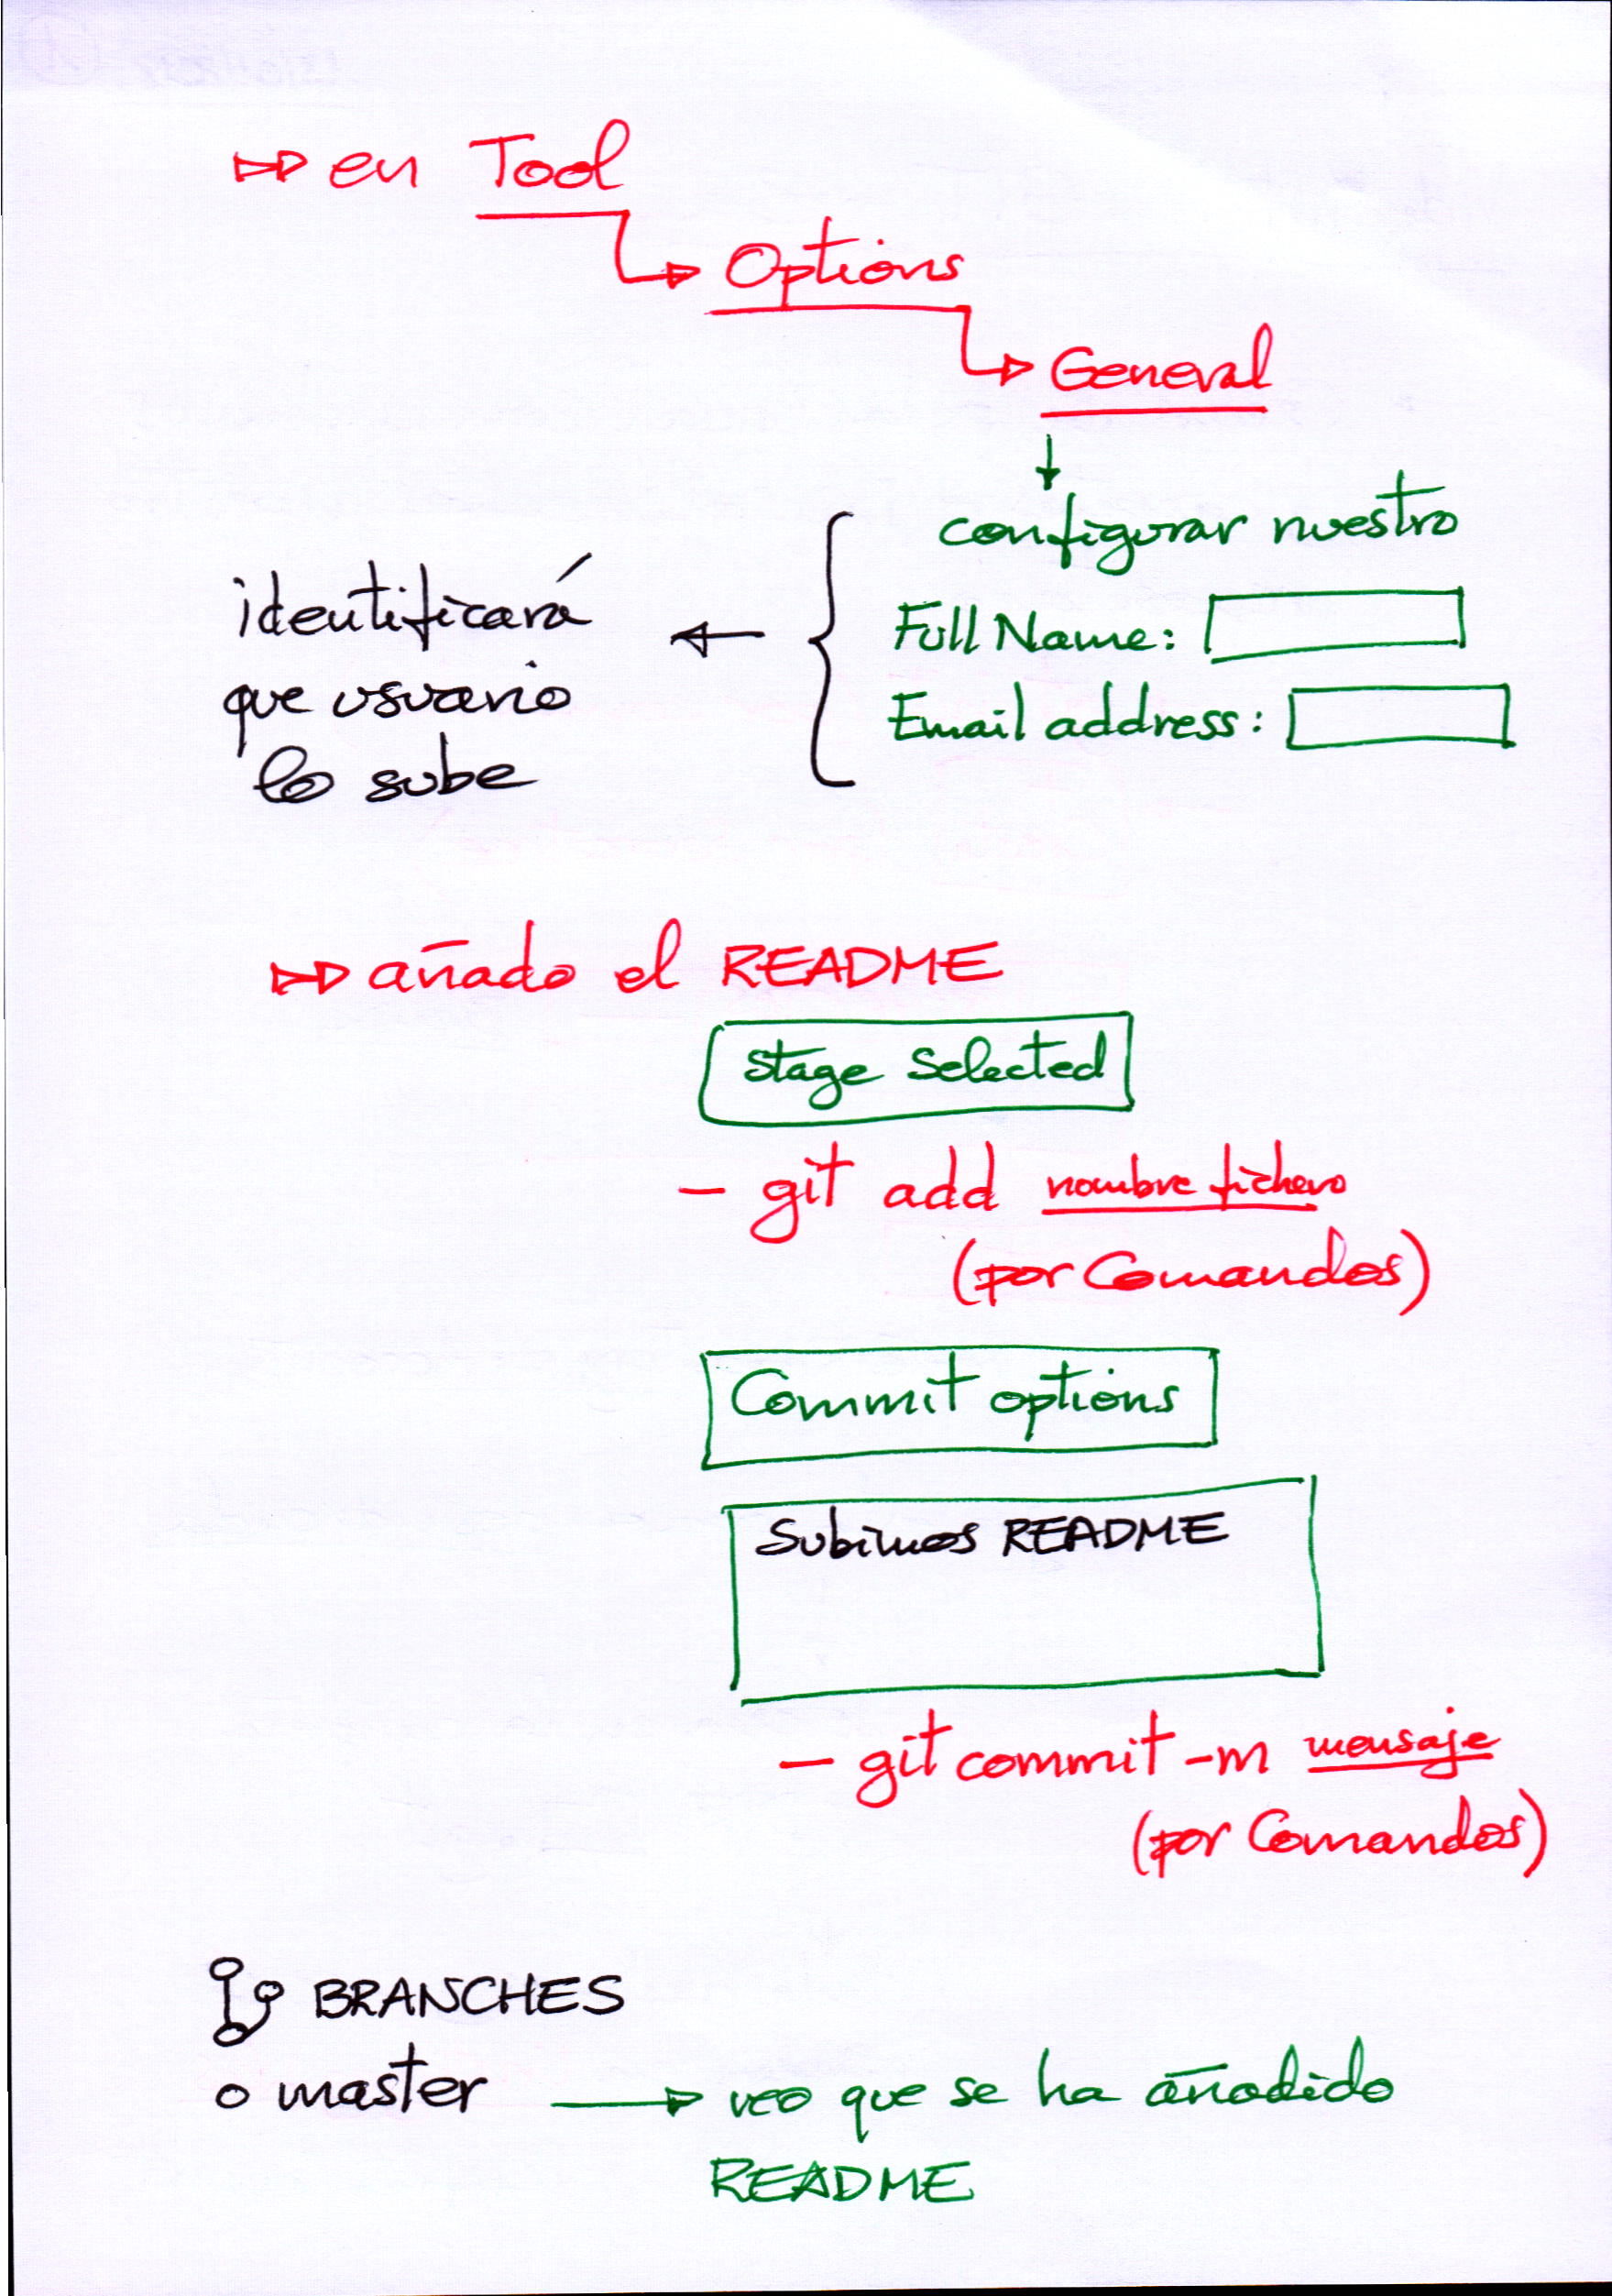 en Tool
Options
General
configurar nuestro
Full Name:
Email address:
identificará
que usuario
lo sube
añado el README
Stage Selected
- git add nombre fichero
(por Comandos)
Commit options
Subimos README
- git commit -m mensaje
(por Comandos)
BRANCHES
o master → veo que se ha añadido
README